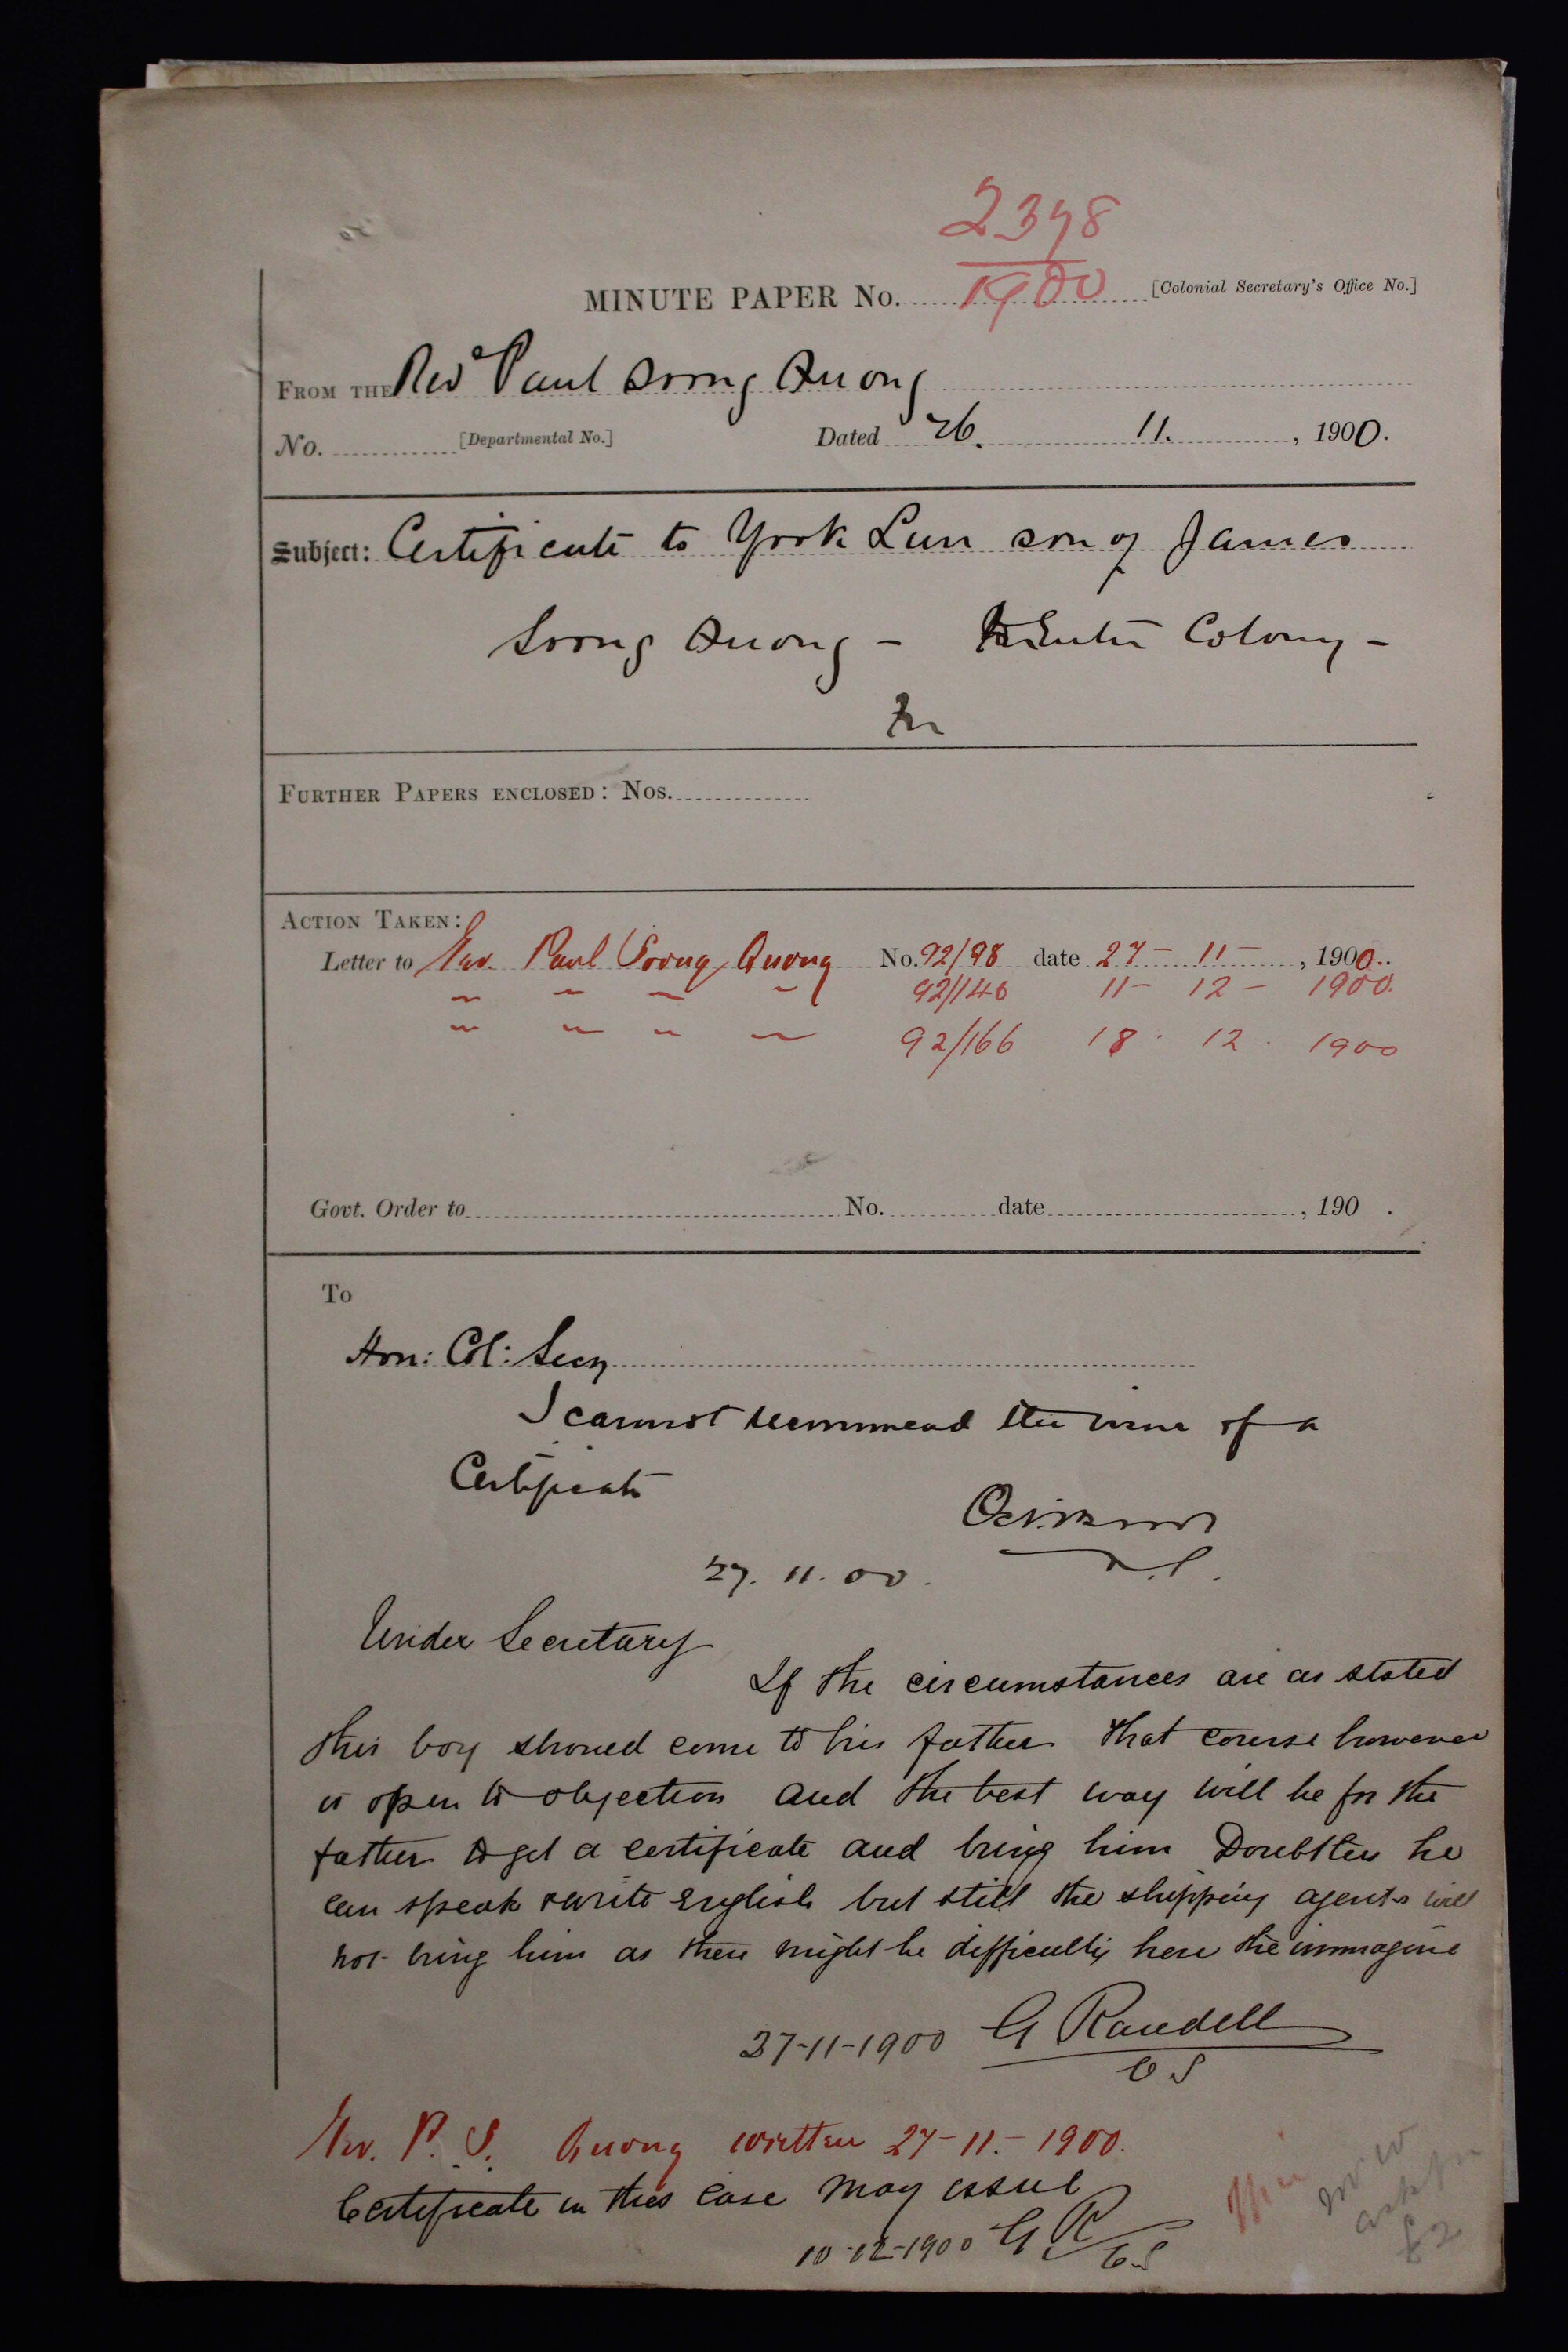 2398
1900
MINUTE PAPER No. [Colonial Secretary's Office No.]
FROM THE Revd Paul Soong Quong
No. [Departmental No.] Dated 26. 11. , 1900.
Subject: Certificate to York Lun son of James
Soong Quong - to Enter Colony -
FURTHER PAPERS ENCLOSED: Nos.
ACTION TAKEN:
Letter to Rev. Paul Soong Quong No. 92/98 date 27 - 11 - , 1900..
" " " " 92/146 11 - 12 - 1900.
" " " " 92/166 18 . 12 . 1900
Govt. Order to No. date , 190 .
To
Hon: Col: Secy
I cannot recommend the issue of a
Certificate
27. 11. 00.
Under Secretary
If the circumstances are as stated
this boy should come to his father that course however
is open to objection and the best way will be for the
father to get a certificate and bring him Doubtless he
can speak & write English but still the shipping agents will
not bring him as there might be difficulty here the immagine
27-11-1900 G Randell
CS
Rev. P. S. Quong written 27-11.-1900.
Certificate in this case may issue
10-12-1900 G R
CS